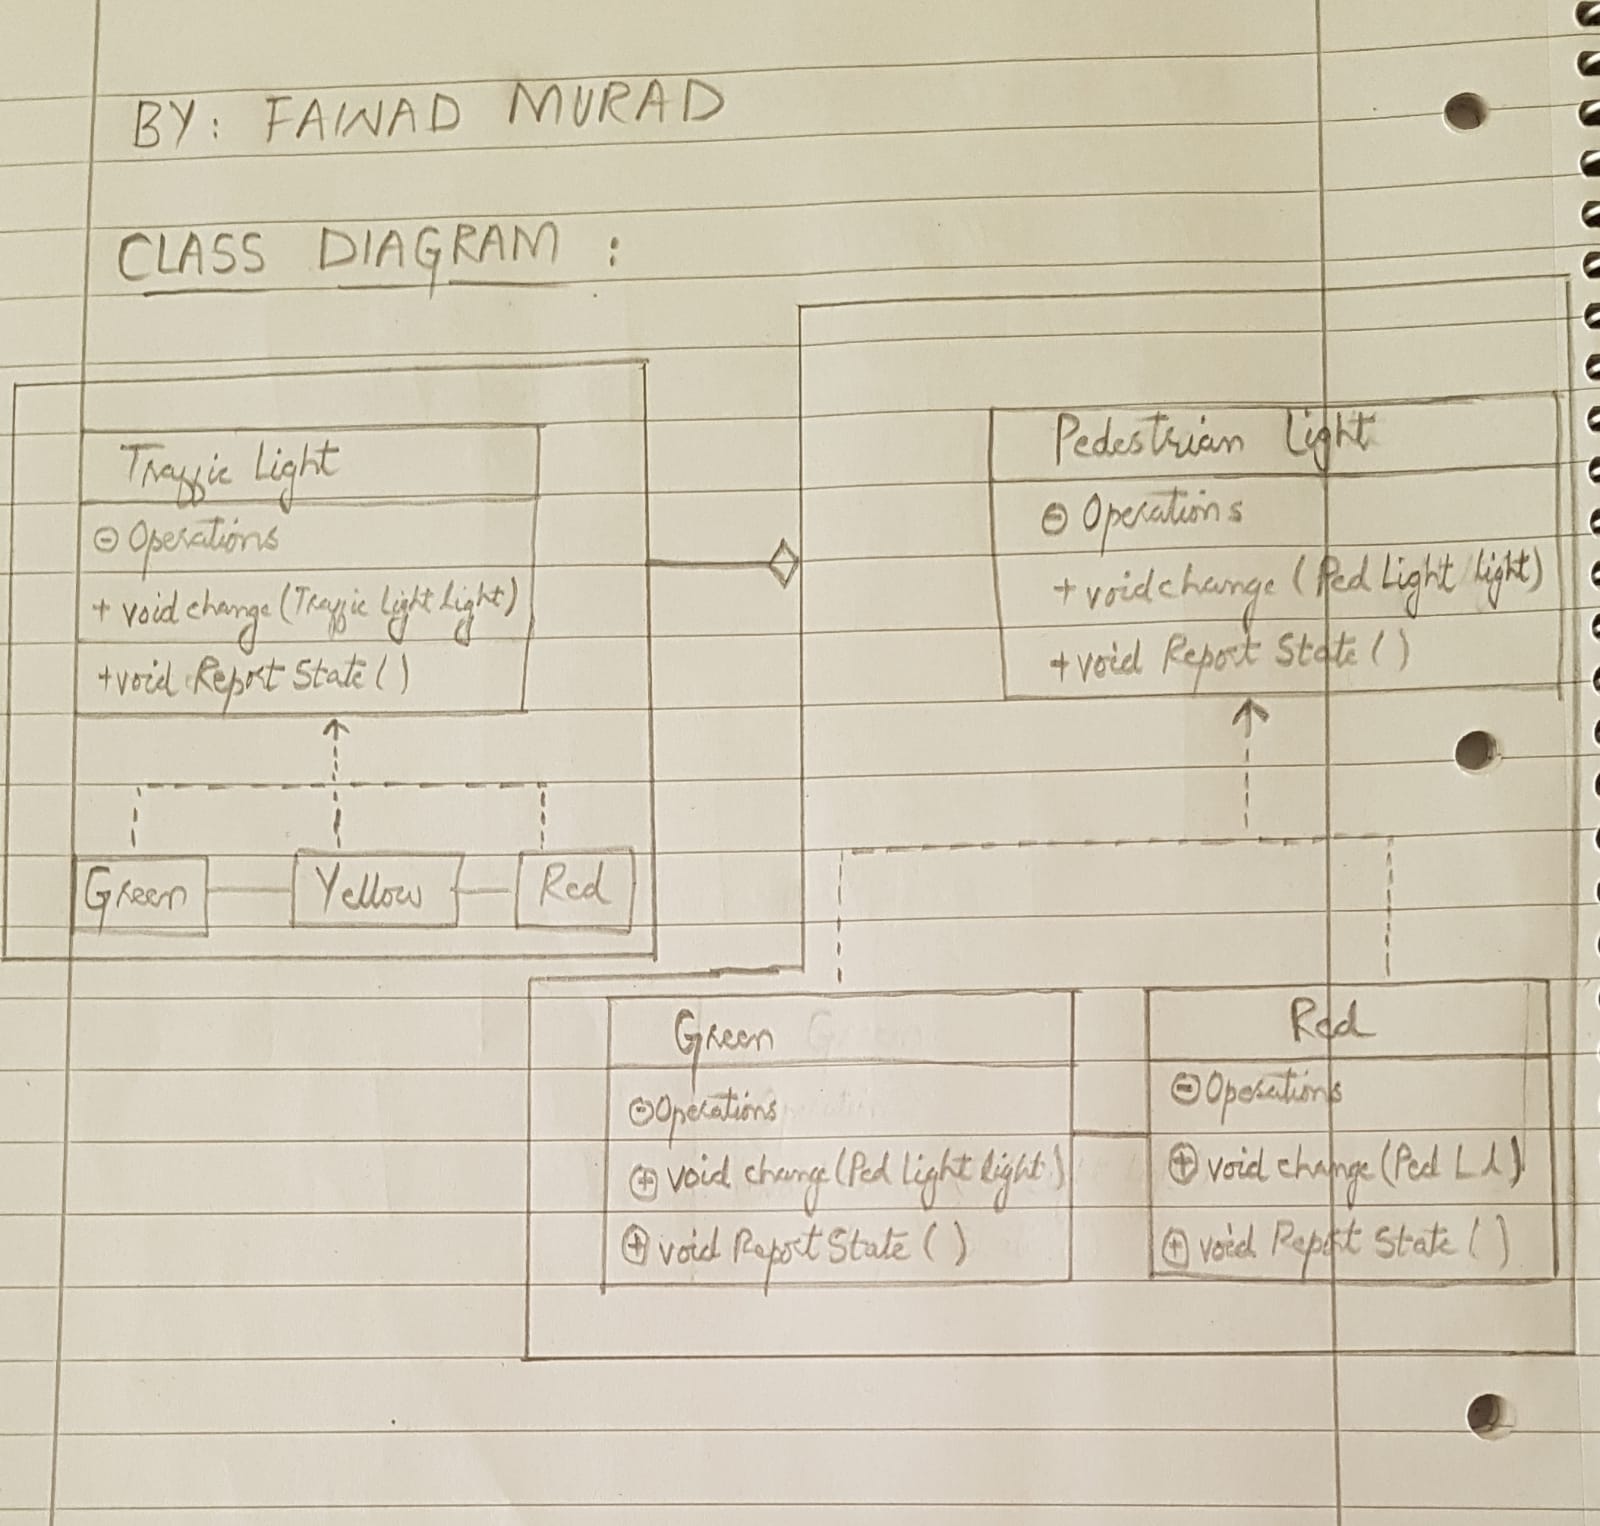 BY: FAWAD MURAD
CLASS DIAGRAM :
Traffic Light
⊖ Operations
+ void change (Traffic Light Light)
+void Report State ()
Green
Yellow
Red
Pedestrian Light
⊖ Operations
+ void change (Ped Light light)
+void Report State ()
Green Green
⊖Operations
⊕ void change (Ped Light light)
⊕ void Report State ()
Red
⊖Operations
⊕ void change (Ped L l)
⊕ void Report State ()